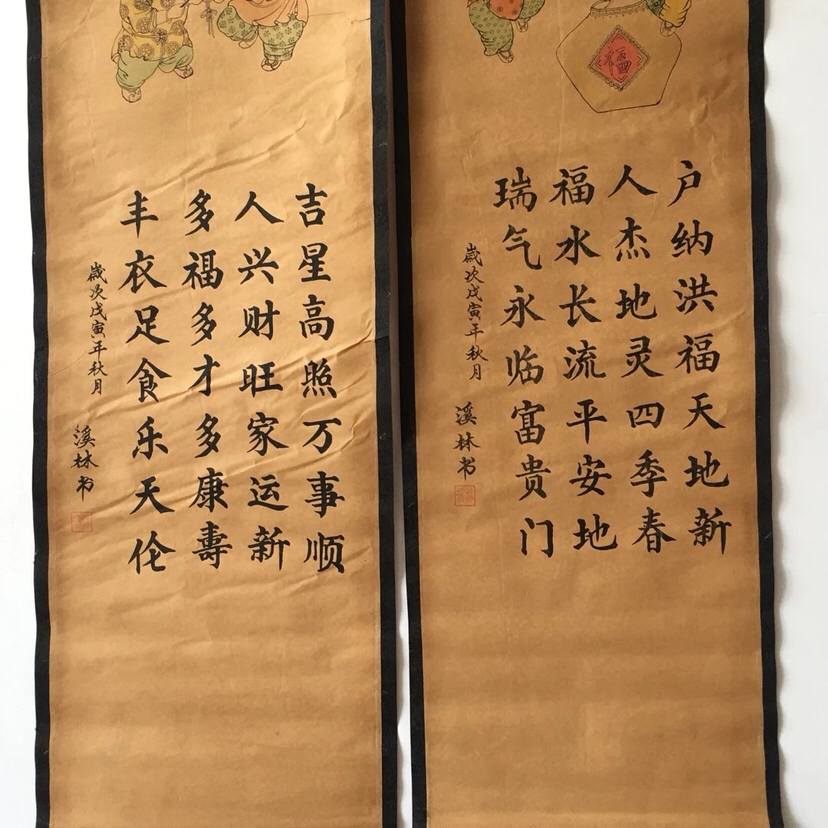 户纳洪福天地新
人杰地灵四季春
福水长流平安地
瑞气永临富贵门
歲次戊寅年秋月
溪林书
吉星高照万事顺
人兴财旺家运新
多福多才多康壽
丰衣足食乐天伦
歲次戊寅年秋月
溪林书